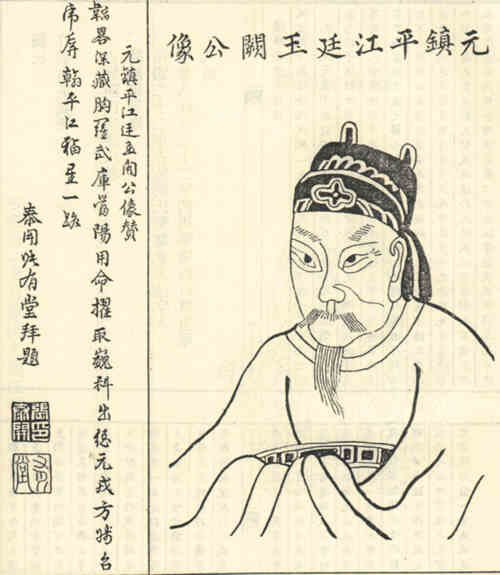 元鎮平江廷玉闕公像
元鎮平江廷玉闕公像贊
韜畧深藏胸羅武庫當陽用命擢取巍科出總元戎方躋台
席屏翰平江福星一路
泰開有堂拜題